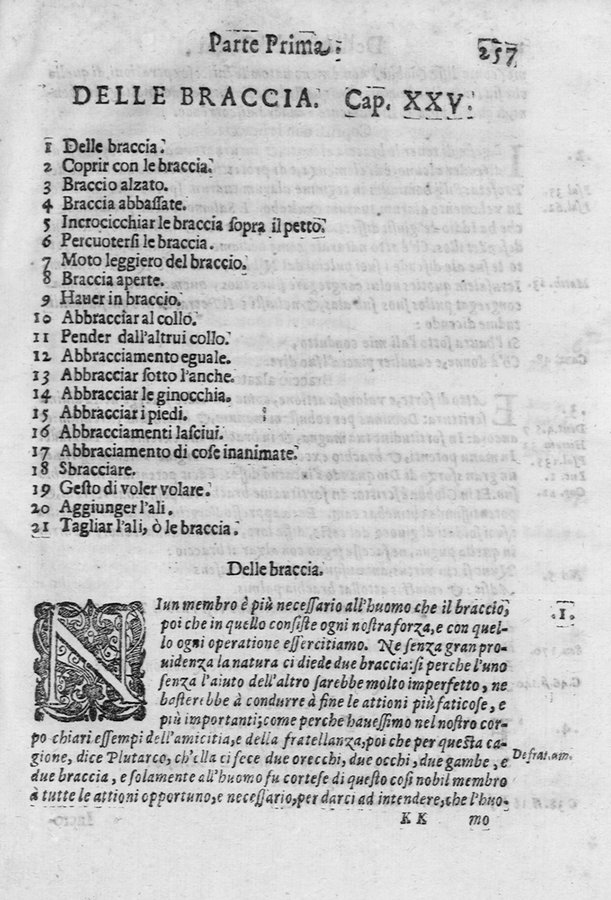 Parte Prima. 257
DELLE BRACCIA. Cap. XXV.
1 Delle braccia.
2 Coprir con le braccia.
3 Braccio alzato.
4 Braccia abbassate.
5 Incrocicchiar le braccia sopra il petto.
6 Percuotersi le braccia.
7 Moto leggiero del braccio.
8 Braccia aperte.
9 Hauer in braccio.
10 Abbracciar al collo.
11 Pender dall'altrui collo.
12 Abbracciamento eguale.
13 Abbracciar sotto l'anche.
14 Abbracciar le ginocchia.
15 Abbracciar i piedi.
16 Abbracciamenti lasciui.
17 Abbraciamento di cose inanimate.
18 Sbracciare.
19 Gesto di voler volare.
20 Aggiunger l'ali.
21 Tagliar l'ali, ò le braccia.
Delle braccia.
NIun membro è più necessario all'huomo che il braccio, .1.
poi che in quello consiste ogni nostra forza, e con quel-
lo ogni operatione essercitiamo. Ne senza gran pro-
uidenza la natura ci diede due braccia: si perche l'uno
senza l'aiuto dell'altro sarebbe molto imperfetto, ne
basterebbe à condurre à fine le attioni più faticose, e
più importanti; come perche hauessimo nel nostro cor-
po chiari essempi dell'amicitia, e della fratellanza, poi che per questa ca-
gione, dice Plutarco, ch'ella ci fece due orecchi, due occhi, due gambe, e De frat. am.
due braccia, e solamente all'huomo fu cortese di questo così nobil membro
à tutte le attioni opportuno, e necessario, per darci ad intendere, che l'huo-
K K mo